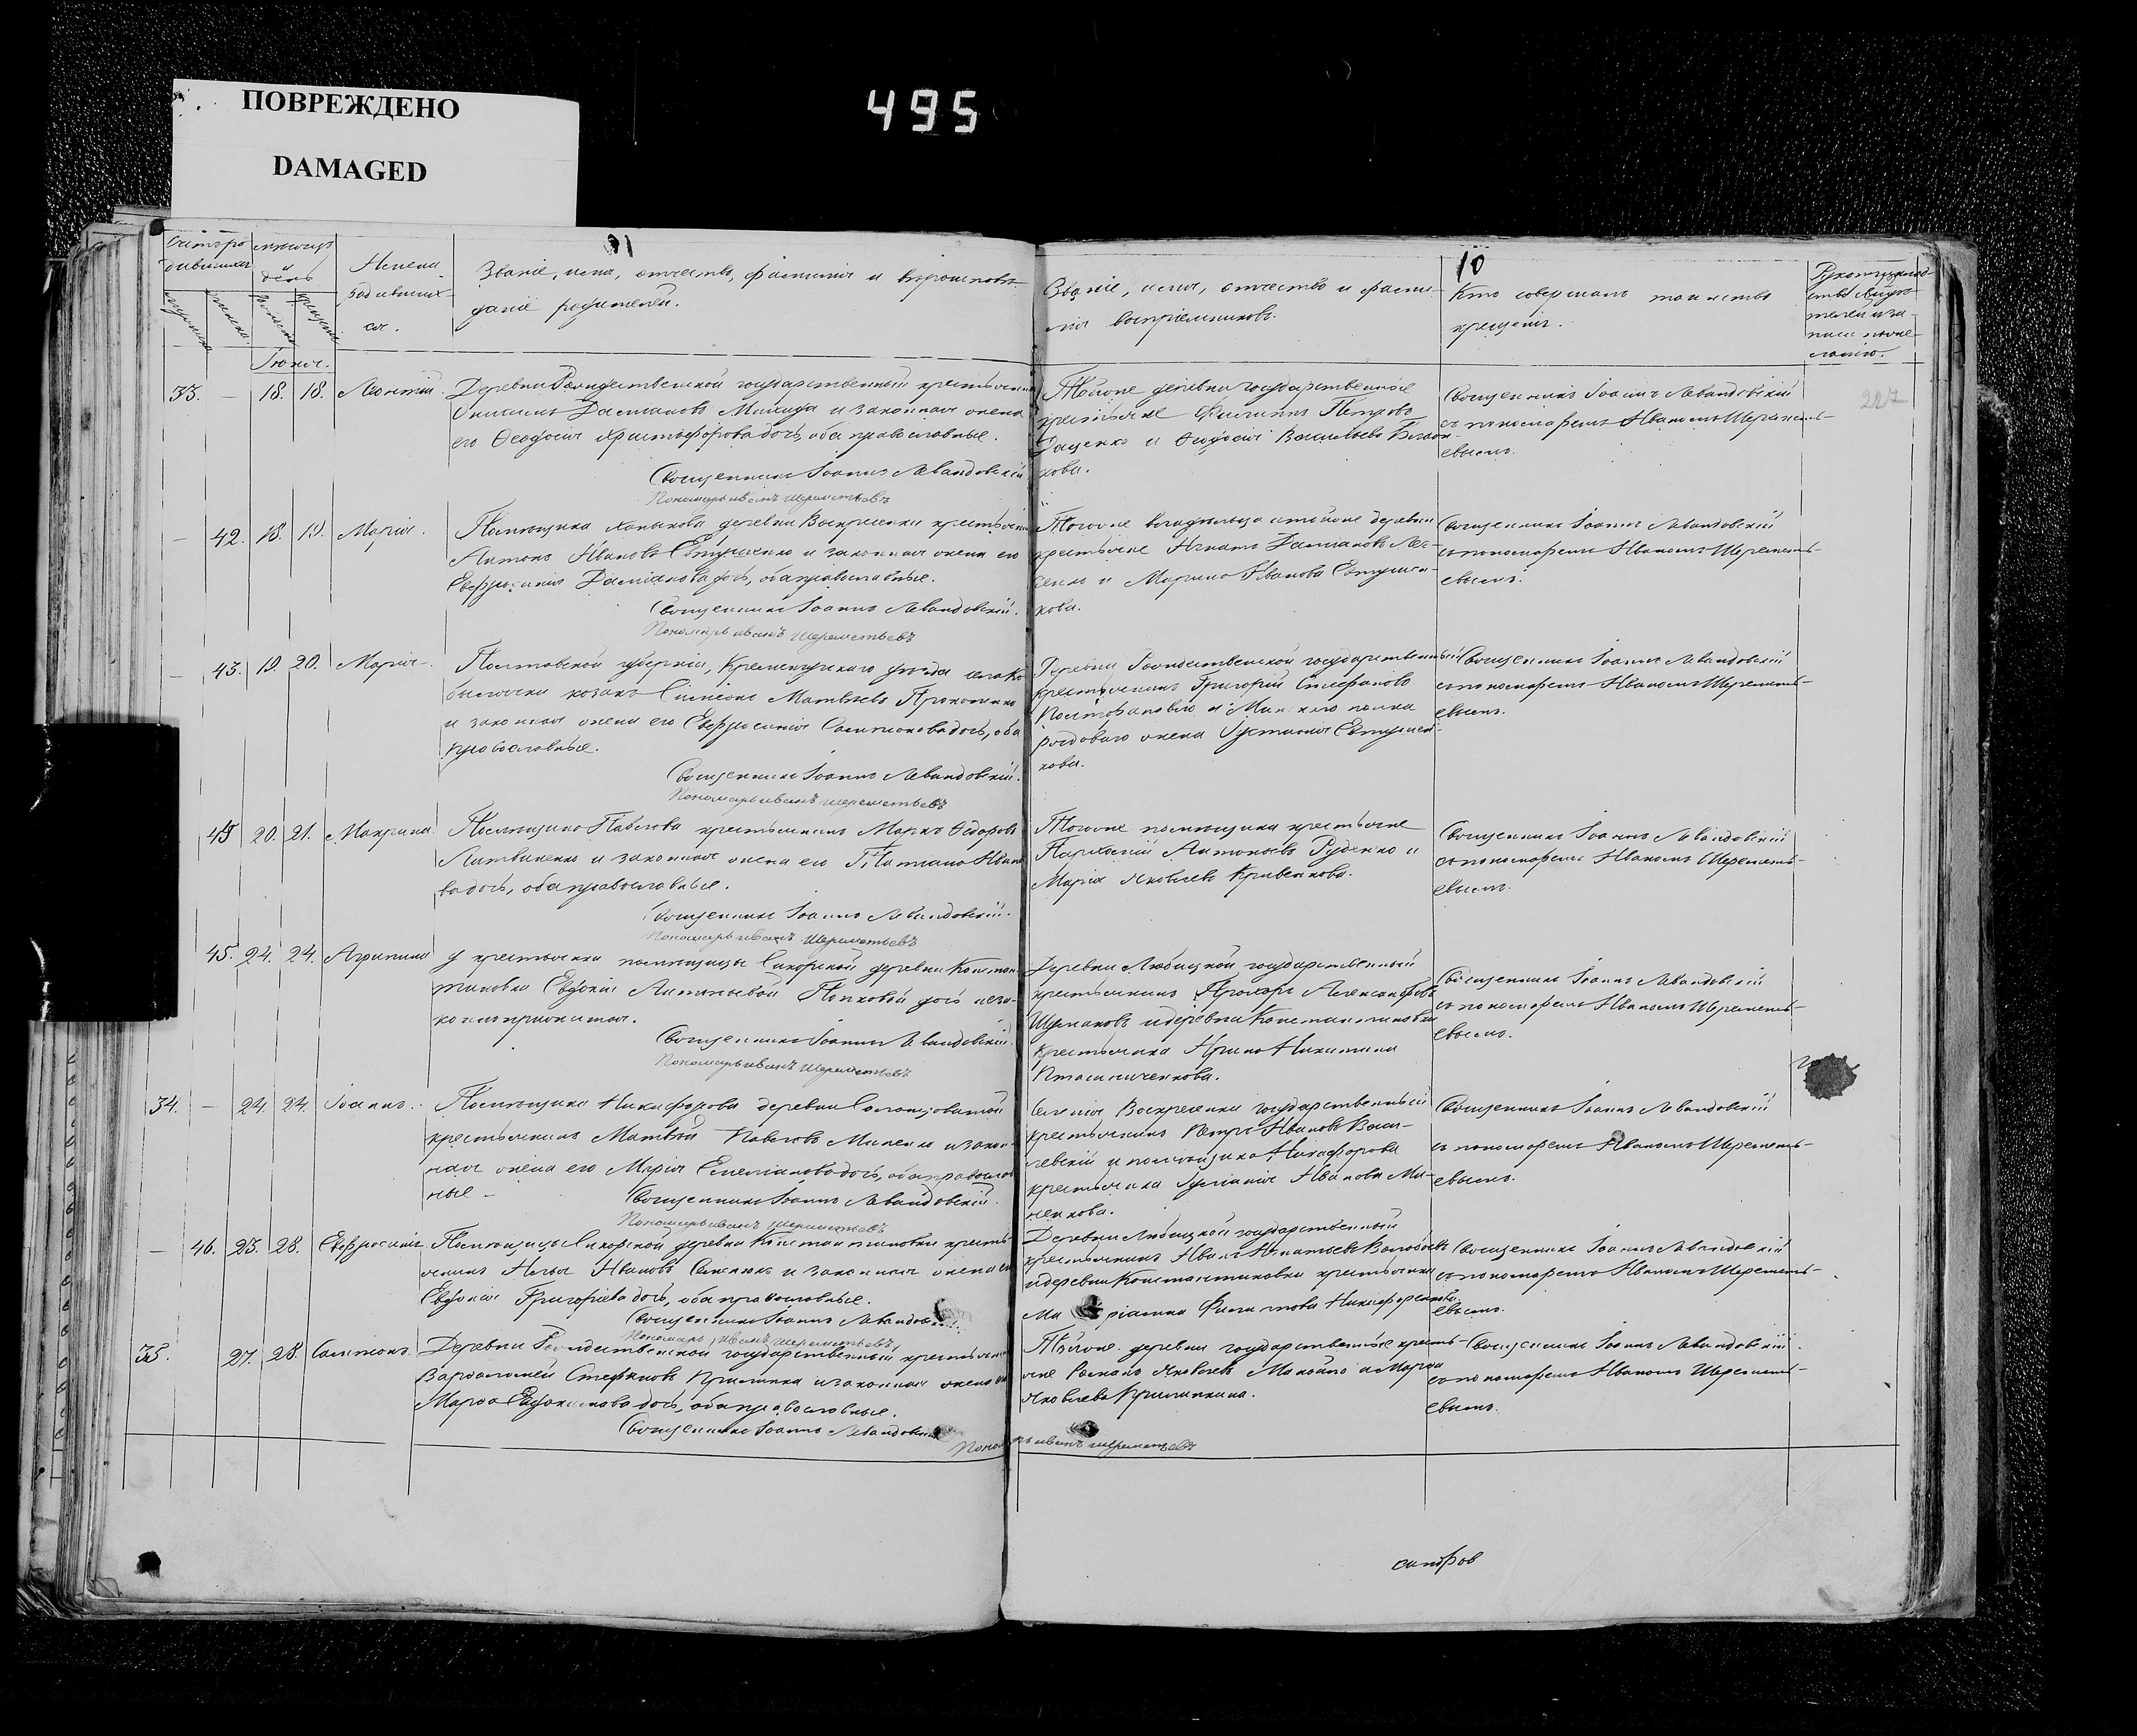 ПОВРЕЖДЕНО
DAMAGED
495
10
Имена
родивших-
ся.
Званіе, имя, отчество, фамилія и вѣроисповѣ-
даніе родителей.
Званіе, имя, отчество и фами-
лія воспріемниковъ.
Кто совершалъ таинство
крещенія.
Іюнь.
33. — 18. 18. Леонтій.
Деревни Рождественской государственный крестьянинъ
Даміановъ и законная жена
его Ѳеодосія Христофорова дочь, оба православные.
Священникъ Іоаннъ Левандовскій
Пономарь иванъ шереметьевъ
Тойже деревни государственные
крестьяне Филиппъ Петровъ
и Ѳеодосія Васильева
кова.
Священникъ Іоаннъ Левандовскій
съ пономаремъ Иваномъ Шереметь-
евымъ.
227
— 42. 18. 19. Марія.
Помѣщика деревни Воскресенки крестьянинъ
Антонъ Ивановъ Евтушенко и законная жена его
Евфросинія Даміанова дочь, оба православные.
Священникъ Іоаннъ Левандовскій.
Пономарь иванъ шереметьевъ
Тогоже владѣльца и тойже деревни
крестьяне Игнатъ Даміановъ
и Марина Иванова Евтушен-
кова.
Священникъ Іоаннъ Левандовскій
съ пономаремъ Иваномъ Шереметь-
евымъ.
— 43. 19. 20. Марія.
Полтавской губерніи, Кременчугскаго уѣзда села Ко
былячки козакъ Симеонъ Матвѣевъ Прокопенко
и законная жена его Евфросинія Сампсонова дочь, оба
православные.
Священникъ Іоаннъ Левандовскій.
Пономарь иванъ шереметьевъ
Деревни Рождественской государственный
крестьянинъ Григорій Стефановъ
и полка
рядоваго жена Іустинія Евтушен-
кова.
Священникъ Іоаннъ Левандовскій
съ пономаремъ Иваномъ Шереметь-
евымъ.
20. 21. Макрина.
Помѣщика Павлова крестьянинъ Маркъ Ѳедоровъ
Литвиненко и законная жена его Татіана Ивано
ва дочь, оба православные.
Священникъ Іоаннъ Левандовскій.
Пономарь иванъ Шереметьевъ
Тогоже помѣщика крестьяне
Пархомій Антоньевъ Руденко и
Марія Яковлева Кривенкова.
Священникъ Іоаннъ Левандовскій
съ пономаремъ Иваномъ Шереметь-
евымъ.
45. 24. 24. Агрипина
у крестьянки помѣщицы Сикорской деревни Констан
тиновки Евдокіи Антоньевой Попковой дочь неза-
коннорожденная.
Священникъ Іоаннъ Левандовскій.
Пономарь иванъ Шереметьевъ
Деревни Любицкой государственный
крестьянинъ Прохоръ Александровъ
Шумаковъ и деревни Константиновки
крестьянка Ирина Никитина
Священникъ Іоаннъ Левандовскій
съ пономаремъ Иваномъ Шереметь-
евымъ.
34. — 24. 24. Іоаннъ.
Помѣщика Никифорова деревни
крестьянинъ Матвѣй Павловъ и закон-
ная жена его Марія Емельянова дочь, оба православ
ные —
Священникъ Іоаннъ Левандовскій.
Пономарь иванъ шереметьевъ
Селенія Воскресенки государственный
крестьянинъ Петръ Ивановъ Васи-
левскій и помѣщика Никифорова
крестьянка Іуліанія Иванова Ми-
ненкова.
Священникъ Іоаннъ Левандовскій
съ пономаремъ Иваномъ Шереметь-
евымъ.
— 46. 25. 28. Евфросинія
Помѣщицы Сикорской деревни Константиновки кресть-
янинъ Илья Ивановъ и законная жена его
Евдокія Григорьева дочь, оба православные.
Священникъ Іоаннъ Левандовскій.
Пономарь иванъ шереметьевъ
Деревни Любицкой государственный
крестьянинъ Иванъ Игнатьевъ
и деревни Константиновки крестьянка
Филипова Никифоренкова.
Священникъ Іоаннъ Левандовскій
съ пономаремъ Иваномъ Шереметь-
евымъ.
35. 27. 28. Сампсонъ.
Деревни Рождественской государственный крестьянинъ
Варѳоломей Стефановъ и законная жена его
Марѳа Евдокимова дочь, оба православные.
Священникъ Іоаннъ Левандовскій
Пономарь иванъ шереметьевъ
Тойже деревни государственные кресть-
яне Романъ Яковлевъ и Марѳа
Яковлева
Священникъ Іоаннъ Левандовскій.
съ пономаремъ Иваномъ Шереметь-
евымъ.